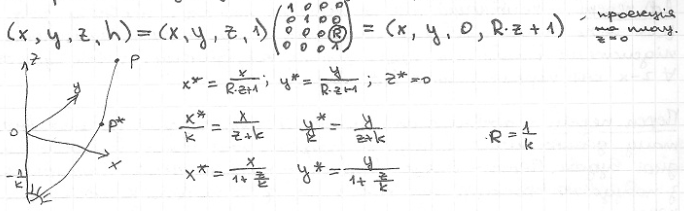 (x, y, z, h) = (x, y, z, 1) (1 0 0 0 / 0 1 0 0 / 0 0 0 R / 0 0 0 1) = (x, y, 0, R·z+1) - проекція на площ. z=0
z P
y
x* = x/(R·z+1); y* = y/(R·z+1); z* = 0
0 P*
x*/k = x/(z+k) y*/k = y/(z+k) R = 1/k
x
-1/k
x* = x/(1+z/k) y* = y/(1+z/k)